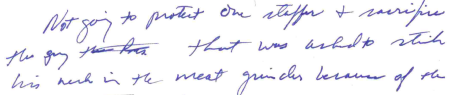 Not going to protect one staffer & sacrifice
the guy that was asked to stick
his neck in the meat grinder because of the